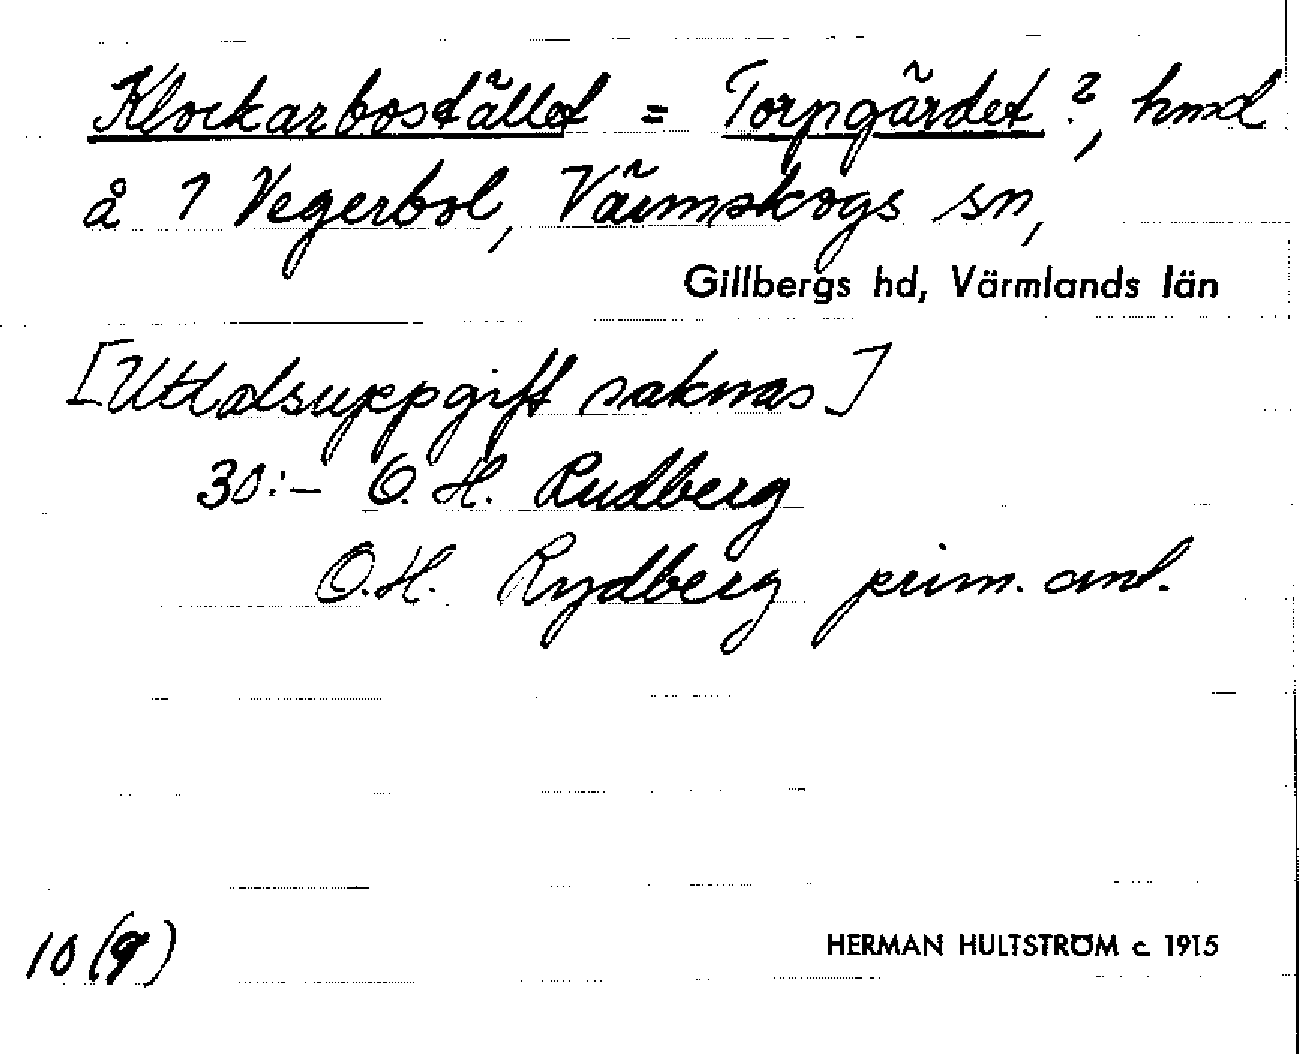 Klockarbostället = Torpgärdet?, hmd
å 1 Vegerbol, Värmskogs sn,
Gillbergs hd, Värmlands län
[Uttalsuppgift saknas]
30:- O. H. Rudberg
O.H. Rydberg prim. ant.
10 (9)
HERMAN HULTSTRÖM c. 1915